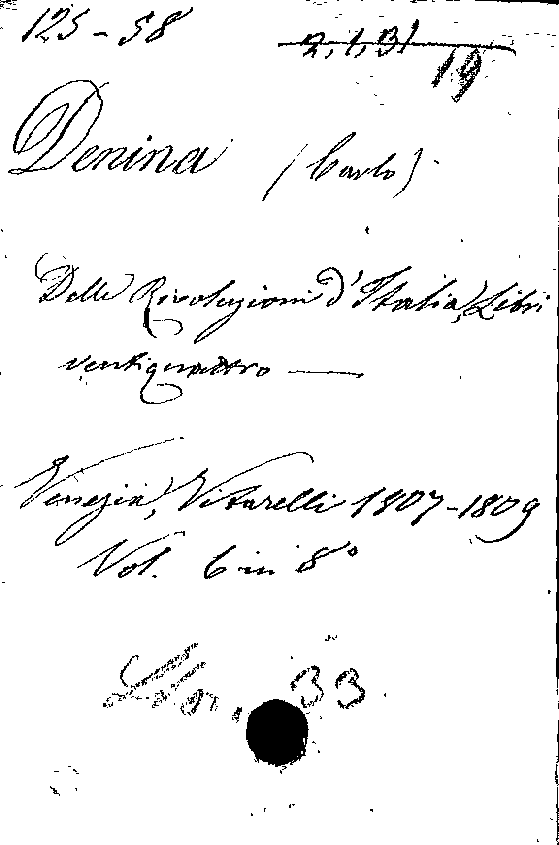 125-58
2,1,31
19
Denina (Carlo)
Delle Rivoluzioni d'Italia, Libri
ventiquattro —
Venezia, Vitarelli 1807-1809
Vol. 6 in 8°
33